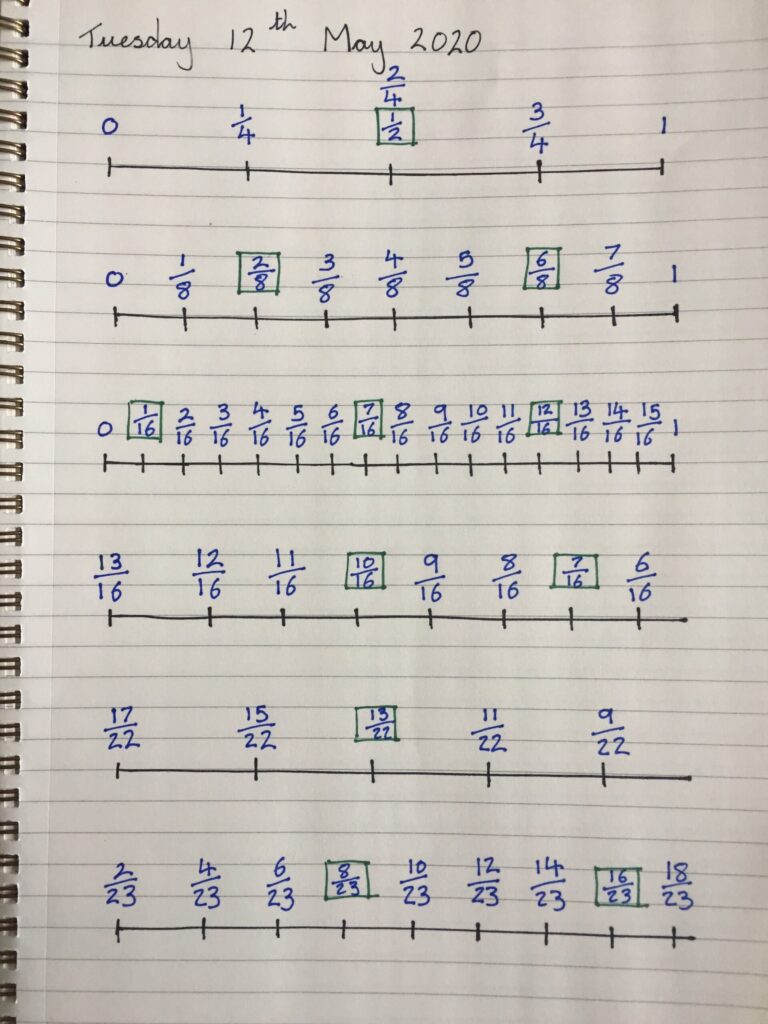 Tuesday 12th May 2020
2/4
0 1/4 1/2 3/4 1
0 1/8 2/8 3/8 4/8 5/8 6/8 7/8 1
0 1/16 2/16 3/16 4/16 5/16 6/16 7/16 8/16 9/16 10/16 11/16 12/16 13/16 14/16 15/16 1
13/16 12/16 11/16 10/16 9/16 8/16 7/16 6/16
17/22 15/22 13/22 11/22 9/22
2/23 4/23 6/23 8/23 10/23 12/23 14/23 16/23 18/23